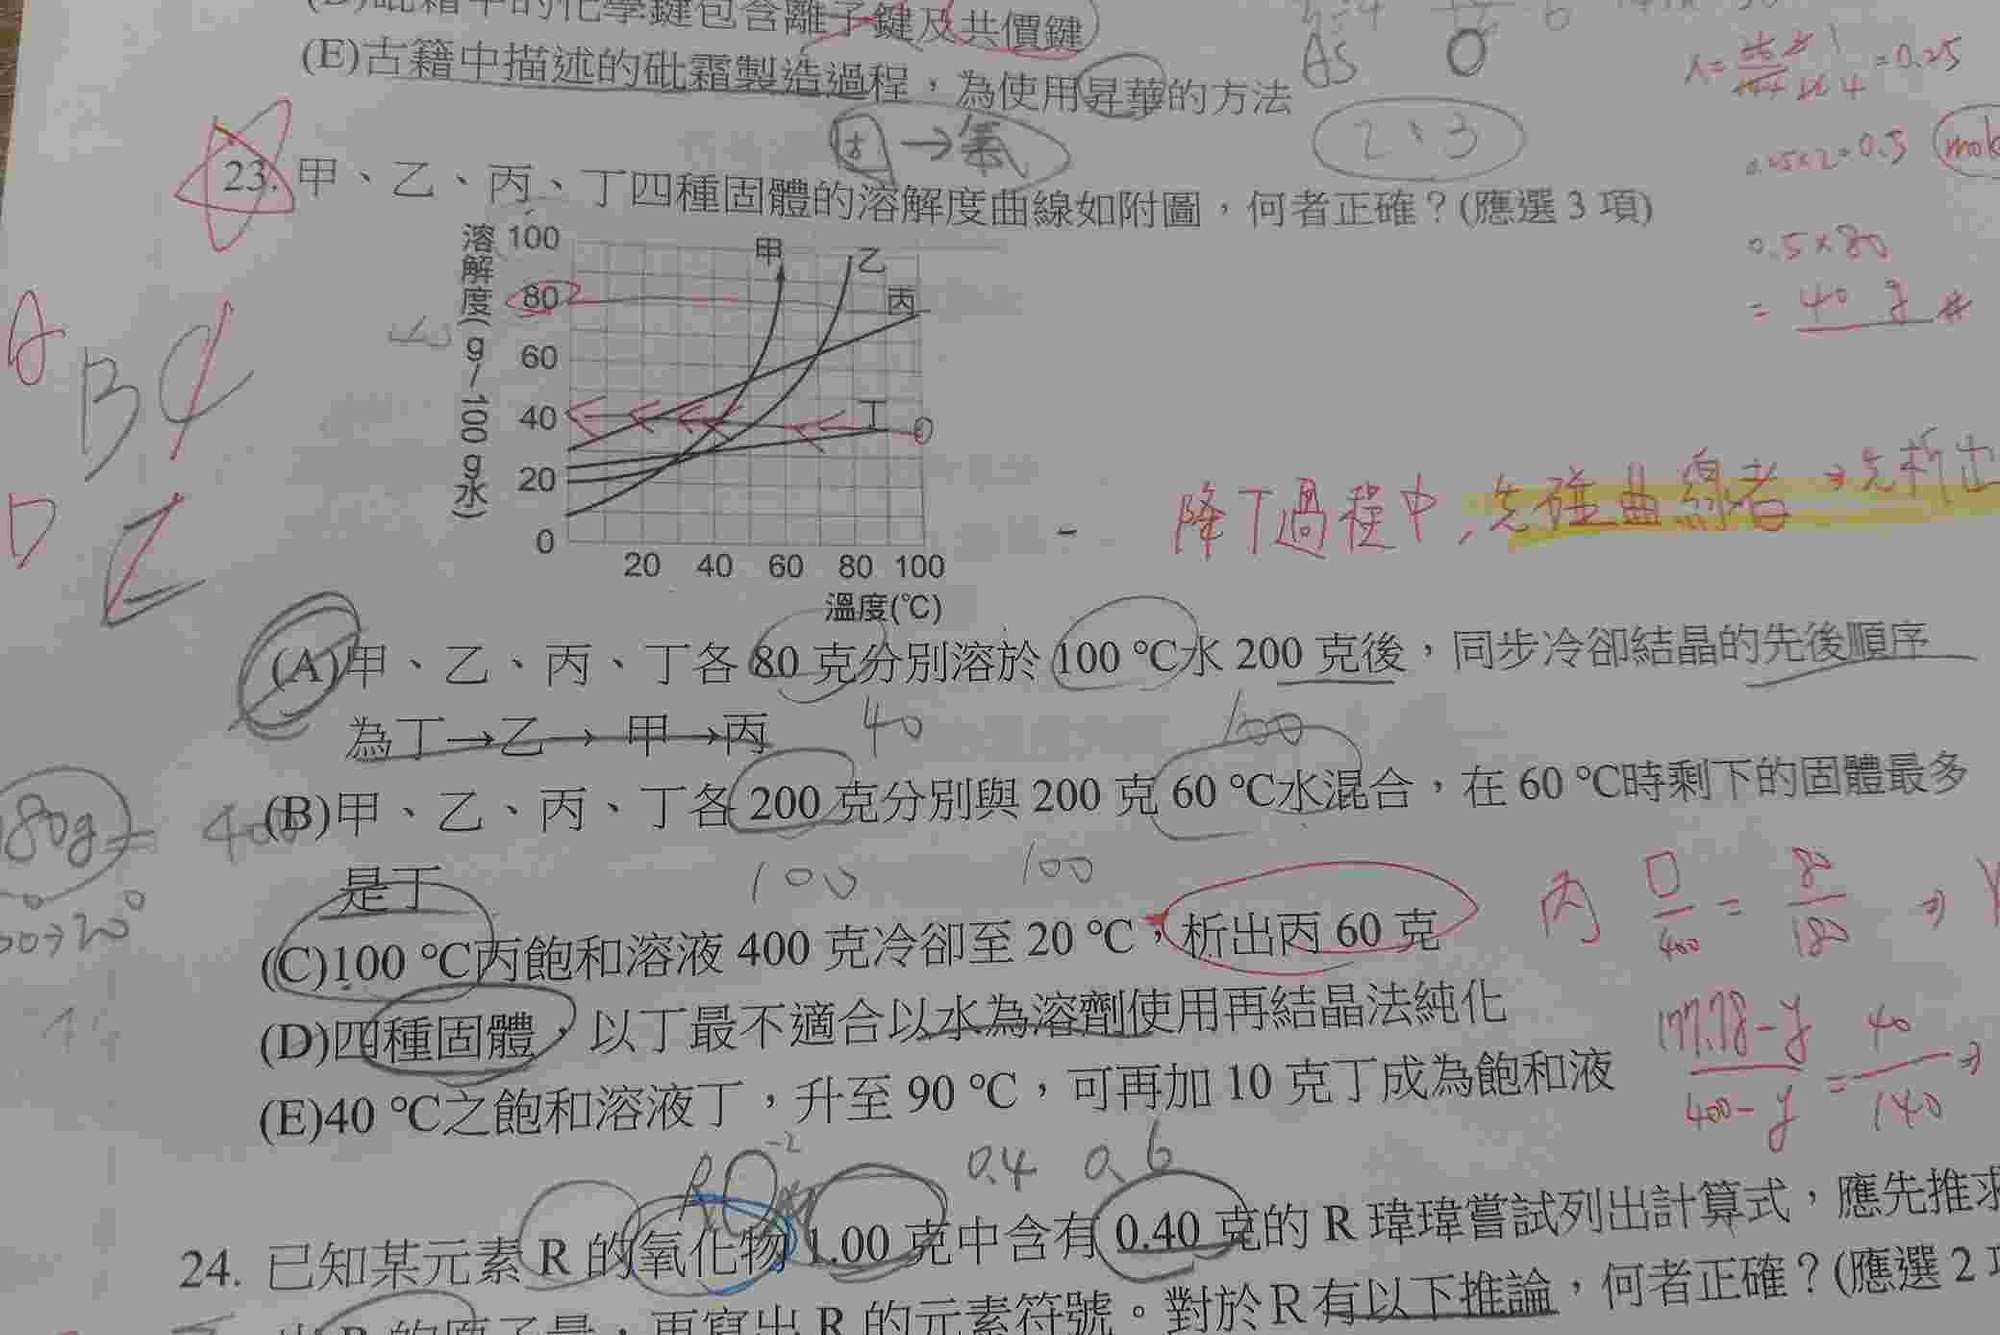 砒霜中的化學鍵包含離子鍵及共價鍵
(E)古籍中描述的砒霜製造過程，為使用昇華的方法
As O
2、3
固→氣
=0.25
0.25×2=0.5 mole
0.5×80
= 40 g #
23. 甲、乙、丙、丁四種固體的溶解度曲線如附圖，何者正確？(應選 3 項)
溶解度(g/100g水)
100
80
60
40
20
0
甲 乙 丙 丁
20 40 60 80 100
溫度(℃)
A B C
D E
降下過程中，先碰曲線者→先析出
(A)甲、乙、丙、丁各 80 克分別溶於 100 ℃水 200 克後，同步冷卻結晶的先後順序
為丁→乙→ 甲→丙
40 100
(B)甲、乙、丙、丁各 200 克分別與 200 克 60 ℃水混合，在 60 ℃時剩下的固體最多
是丁
100 100
(C)100 ℃丙飽和溶液 400 克冷卻至 20 ℃，析出丙 60 克
丙 □/400 = 80/180 ⇒
(D)四種固體，以丁最不適合以水為溶劑使用再結晶法純化
177.78-y/400-y = 40/140 ⇒
(E)40 ℃之飽和溶液丁，升至 90 ℃，可再加 10 克丁成為飽和液
0.4 0.6
24. 已知某元素 R 的氧化物 1.00 克中含有 0.40 克的 R 瑋瑋嘗試列出計算式，應先推求
出 R 的原子量，再寫出 R 的元素符號。對於R有以下推論，何者正確？(應選 2 項